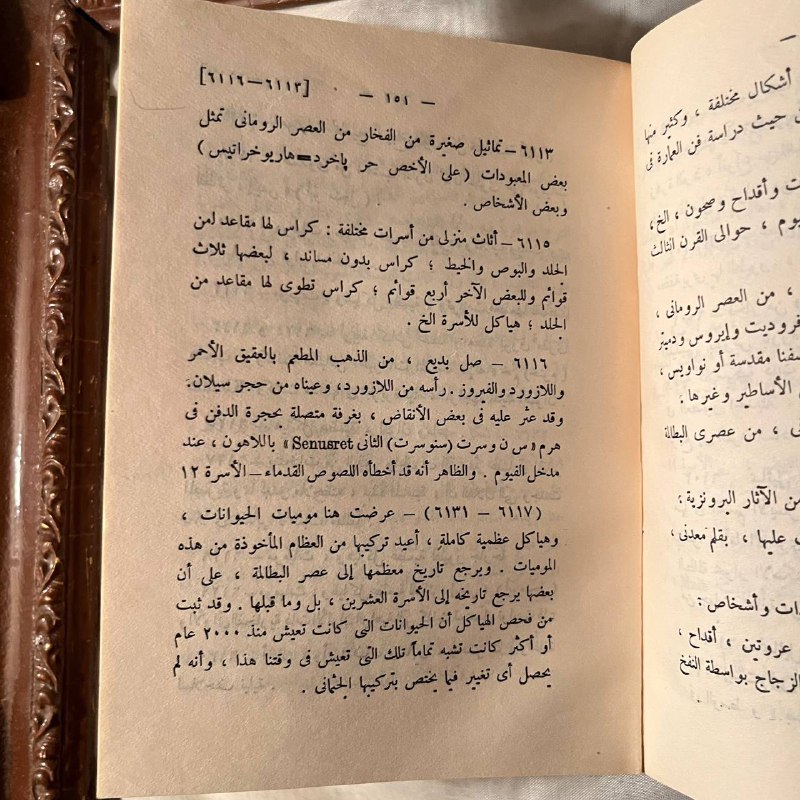 — ١٥١ — [٦١١٣—٦١١٦]
٦١١٣ — تماثيل صغيرة من الفخار من العصر الرومانى تمثل
بعض المعبودات (على الأخص حر پاخرد=هاريوخراتيس)
وبعض الأشخاص .
٦١١٥ — أثاث منزلى من أسرات مختلفة : كراس لها مقاعد لمن
الجلد والبوص والخيط ؛ كراس بدون مساند ، لبعضها ثلاث
قوائم وللبعض الآخر أربع قوائم ؛ كراس تطوى لها مقاعد من
الجلد ؛ هياكل للأسرة الخ .
٦١١٦ — صل بديع ، من الذهب المطعم بالعقيق الأحمر
واللازورد والفيروز . رأسه من اللازورد، وعيناه من حجر سيلان.
وقد عثر عليه فى بعض الأنقاض ، بغرفة متصلة بحجرة الدفن فى
هرم «س ن وسرت (سنوسرت) الثانى Senusret» باللاهون ، عند
مدخل الفيوم . والظاهر أنه قد أخطأه اللصوص القدماء — الأسرة ١٢
(٦١١٧ — ٦١٣١) — عرضت هنا موميات الحيوانات ،
وهياكل عظمية كاملة، أعيد تركيبها من العظام المأخوذة من هذه
الموميات . ويرجع تاريخ معظمها إلى عصر البطالمة ، على أن
بعضها يرجع تاريخه إلى الأسرة العشرين ، بل وما قبلها . وقد ثبت
من فحص الهياكل أن الحيوانات التى كانت تعيش منذ ٢٠٠٠ عام
أو أكثر كانت تشبه تماماً تلك التى تعيش فى وقتنا هذا ، وأنه لم
يحصل أى تغيير فيما يختص بتركيبها الجثمانى .
أشكال مختلفة ، وكثير منها
حيث دراسة فن العمارة فى
وأقداح وصحون ، الخ،
، حوالى القرن الثالث
، من العصر الرومانى ،
وإيروس ودميتر
مقدسة أو نواويس ،
الأساطير وغيرها .
، من عصرى البطالمة
من الآثار البرونزية ،
عليها ، بقلم معدنى ،
وأشخاص :
عروتين ، أقداح ،
الزجاج بواسطة النفخ